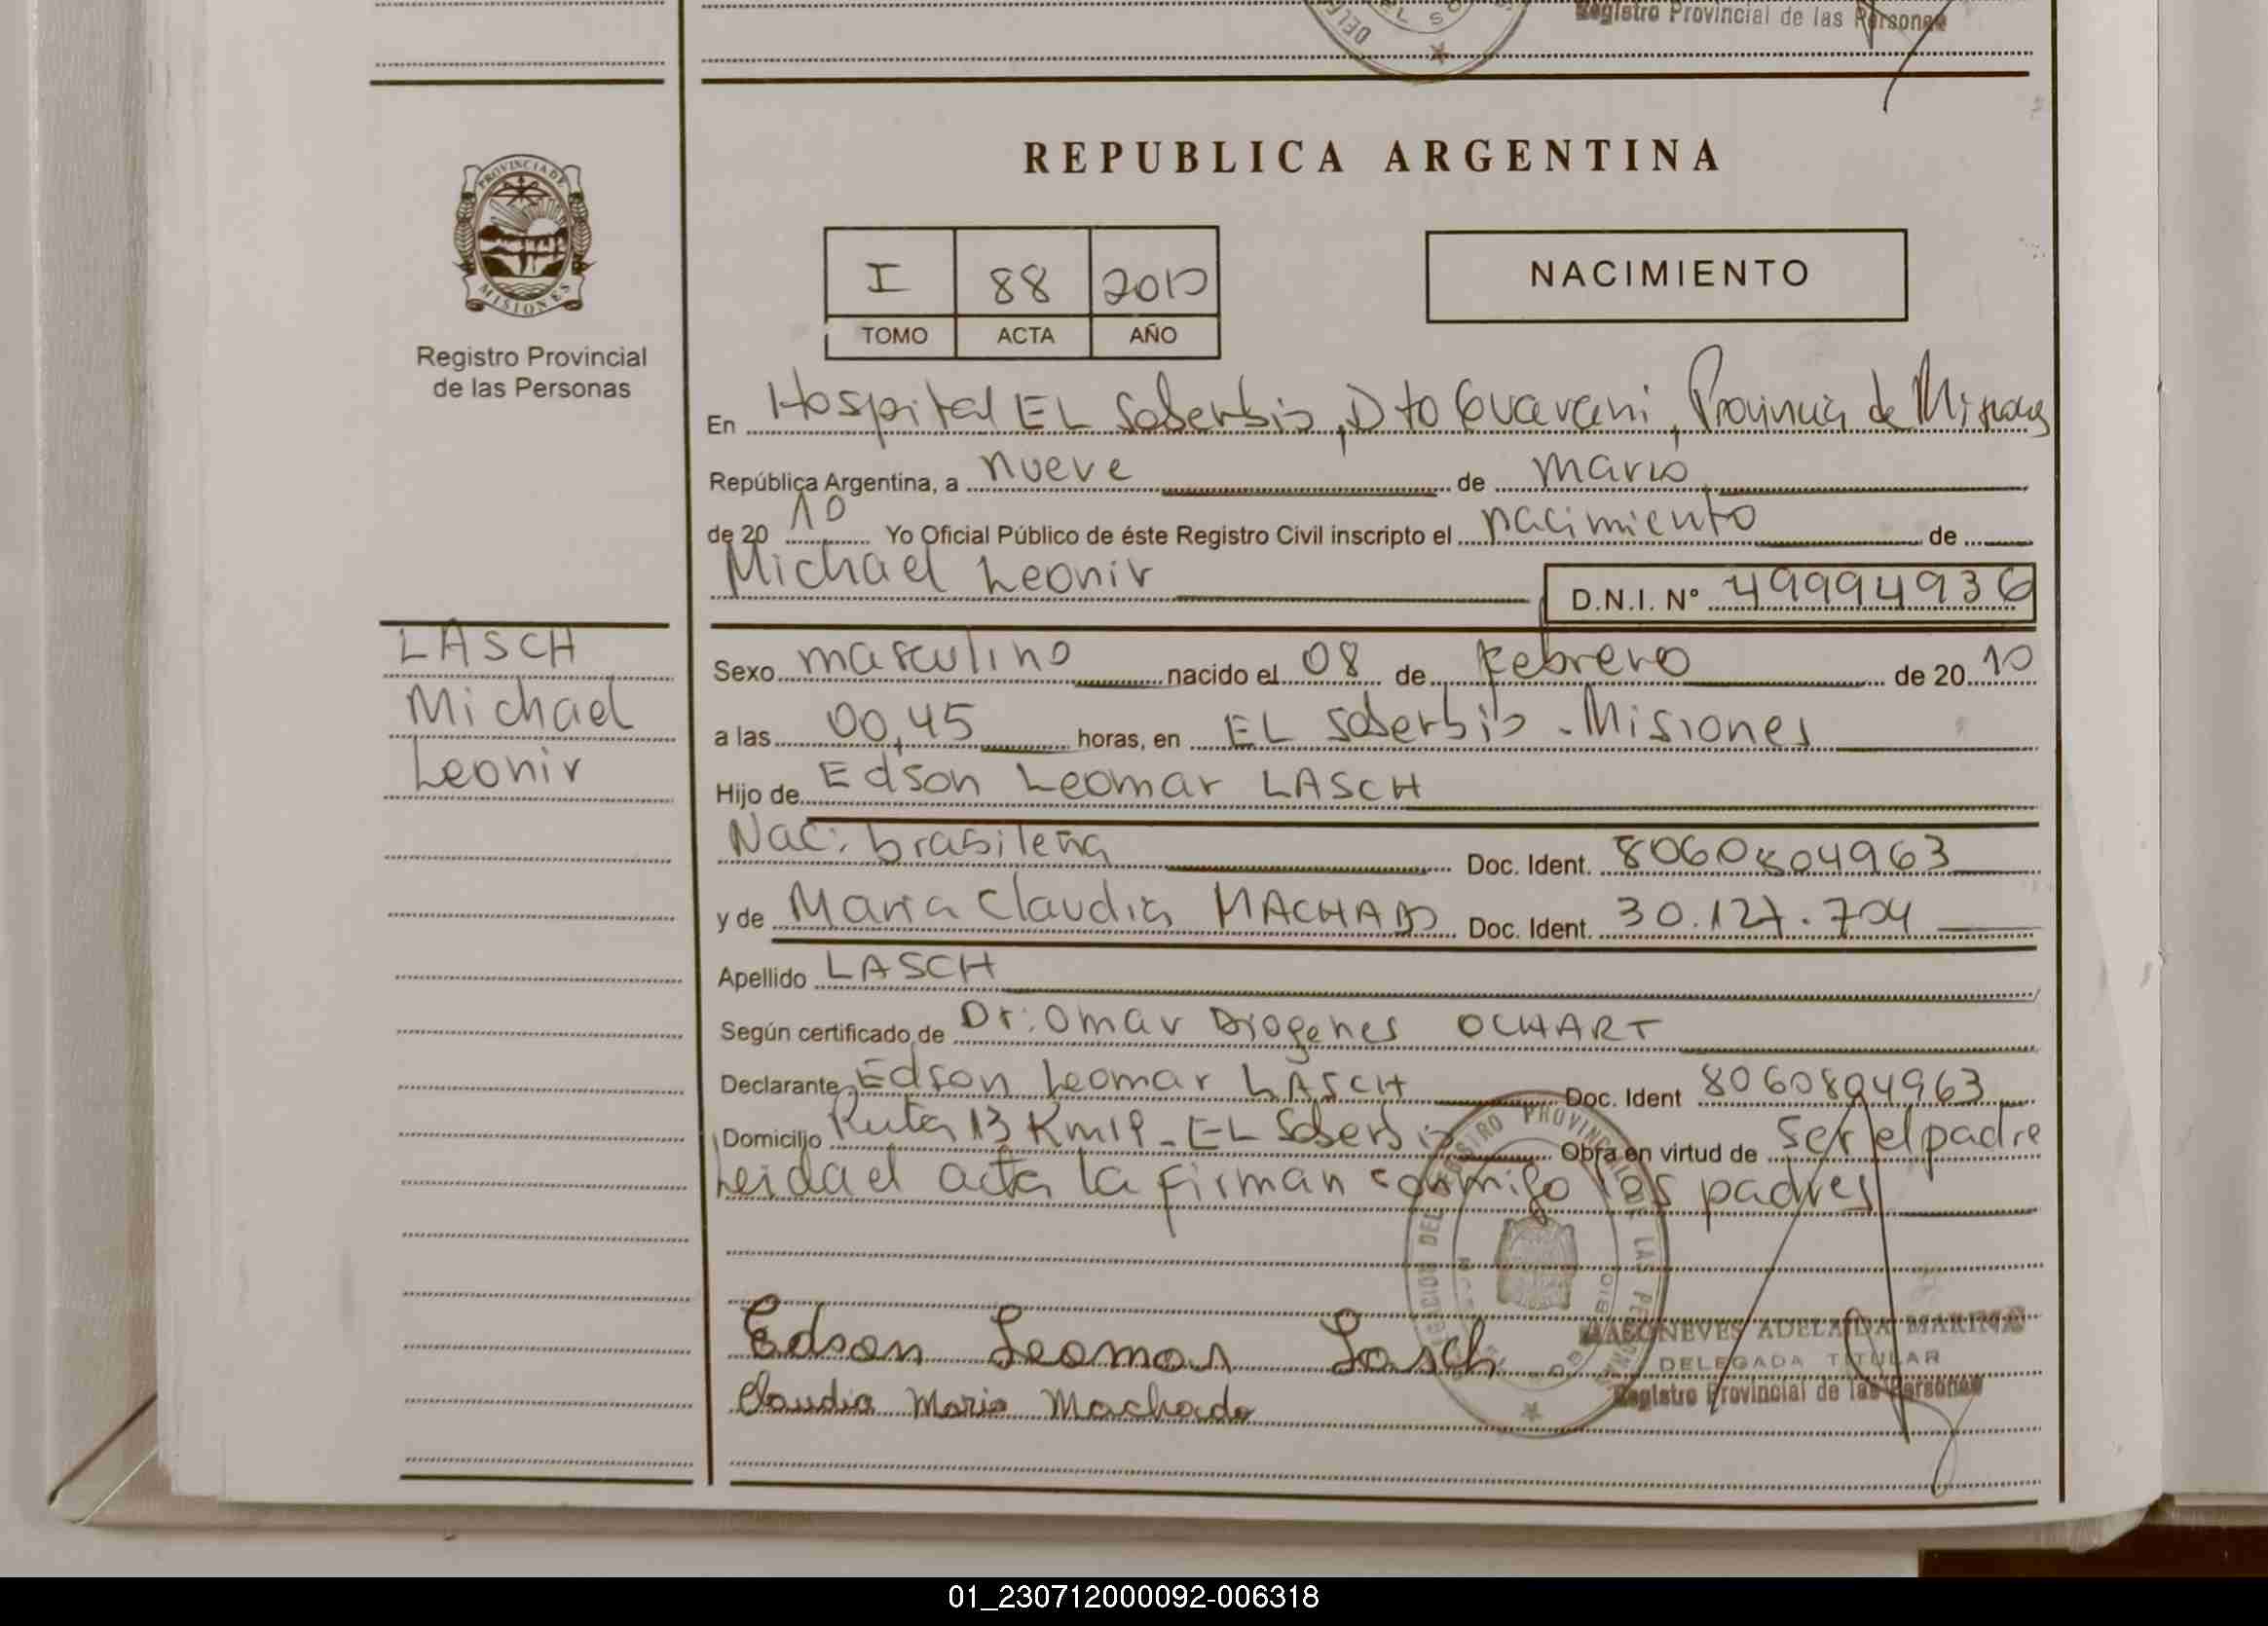 Registro Provincial de las Personas
REPUBLICA ARGENTINA
PROVINCIA DE
MISIONES
Registro Provincial
de las Personas
I 88 2010
TOMO ACTA AÑO
NACIMIENTO
En Hospital EL Soberbio, Dto Guaraní, Provincia de Misiones
República Argentina, a nueve de marzo
de 20 10 Yo Oficial Público de éste Registro Civil inscripto el nacimiento de
Michael Leonir D.N.I. Nº 49994936
LASCH
Michael
Leonir
Sexo masculino nacido el 08 de Febrero de 20 10
a las 00,45 horas, en EL Soberbio - Misiones
Hijo de Edson Leomar LASCH
Nac: brasileña Doc. Ident. 8060804963
y de Maria Claudia MACHADO Doc. Ident. 30.127.704
Apellido LASCH
Según certificado de Dr: Omar Diogenes OCHART
Declarante Edson Leomar LASCH Doc. Ident 8060804963
Domicilio Ruta 13 Km 19 - EL Soberbio Obra en virtud de ser el padre
Leida el acta la firman conmigo los padres
Edson Leomar Lasch
Claudia Maria Machado
ADELAIDA MARINA
DELEGADA TITULAR
Registro Provincial de las Personas
01_230712000092-006318